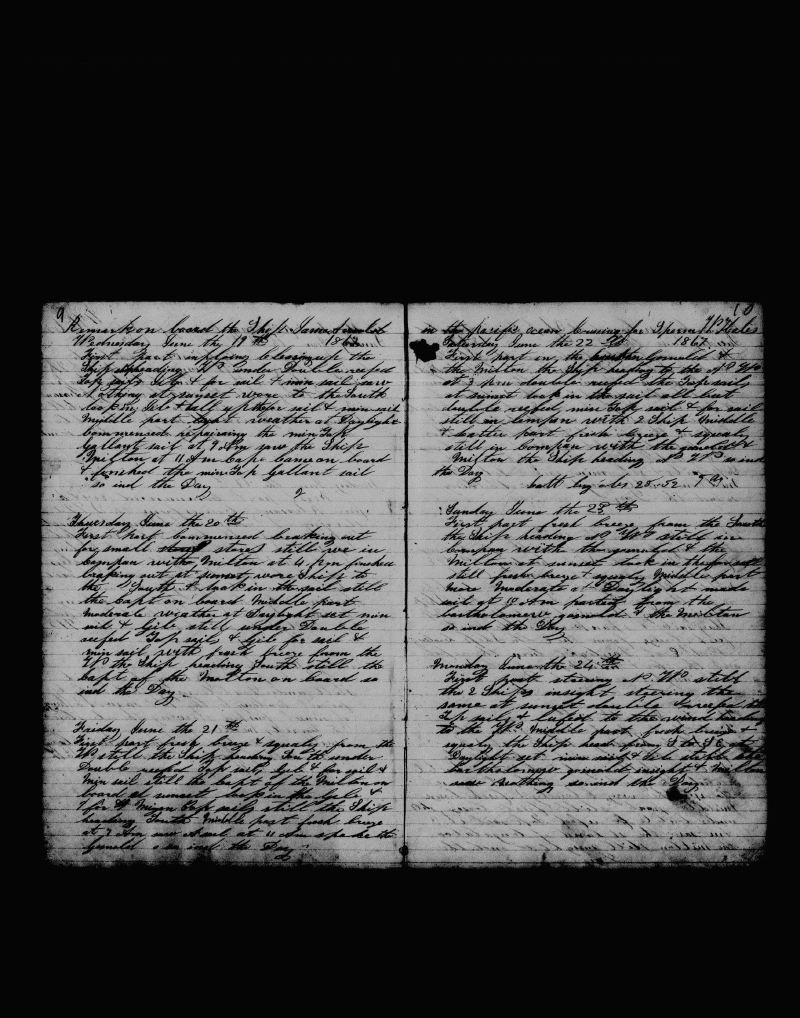 9
Remark on board the Ship James Arnold
Wednesday June the 19th 1867
First part employing cleaning up the
Ship heading W under Double reefed
Top sails Gib & for sail & main sail saw
nothing at sunset wore to the South
took in Gib & all up the for sail & min sail
Middle part weather at Daylight
Commenced repairing the min Top
gallant sail at 9 Am saw the Ship
Milton at 11 Am Capt Came on board
& finished the min Top Gallant sail
so ind the Day
Thursday June the 20th
First part Commenced breaking out
for small stores still we in
Compan with Milton at 4 pm finished
braking out at sunset wore Ship to
the South & took in the sail still
the Capt on board Middle part
moderate weather at Daylight set min
sail & Gib still under Double
reefed Top sails & Gib for sail &
min sail with fresh breeze from the
W the Ship heading South still the
Capt of the Molton on board so
ind the Day
Friday June the 21th
First part fresh breeze & squaly from the
W still the Ship heading South under
Double reefed Top sail Gib & for sail &
Min sail still the Capt of the Milton on
board at sunset
for & Minn Top sails still the Ship
heading South Middle part fresh breeze
at 7 Am saw A sail at 11 Am spoke the
Gosnold so ind the Day
10
in the pacific ocean Cruising for Sperm Whales
Saturday June the 22 1867
First part in the Gosnold &
the Milton the Ship heading to the
at 3 pm double reefed the Top sails
at sunset took in the sail all but
double reefed min Top sail & for sail
still in Compan with 2 Ship Middle
& latter part fresh breeze & squaly
still in Compan with the Gosnold &
Milton the Ship heading N W so ind
the Day
Latt by obs 28-52
Sunday June the 23th
First part fresh breeze from the South
the Ship heading N W still in
Compan with the Gosnold & the
Milton at sunset took in the for sail
still fresh breeze & squaly Middle part
more Moderate at Daylight made
sail at 9 Am parted from the
bartholomew Gosnold & the Milton
so ind the Day
Monday June the 24th
First part steering N W still
the 2 Ships insight steering the
same at sunset double reefed the
Top sails & lufed to the wind heading
to the W Middle part fresh breeze &
squaly the Ship head from S to
Daylight set min sail & Gib
bartholomew Gosnold insight & Milton
saw Nothing so ind the Day